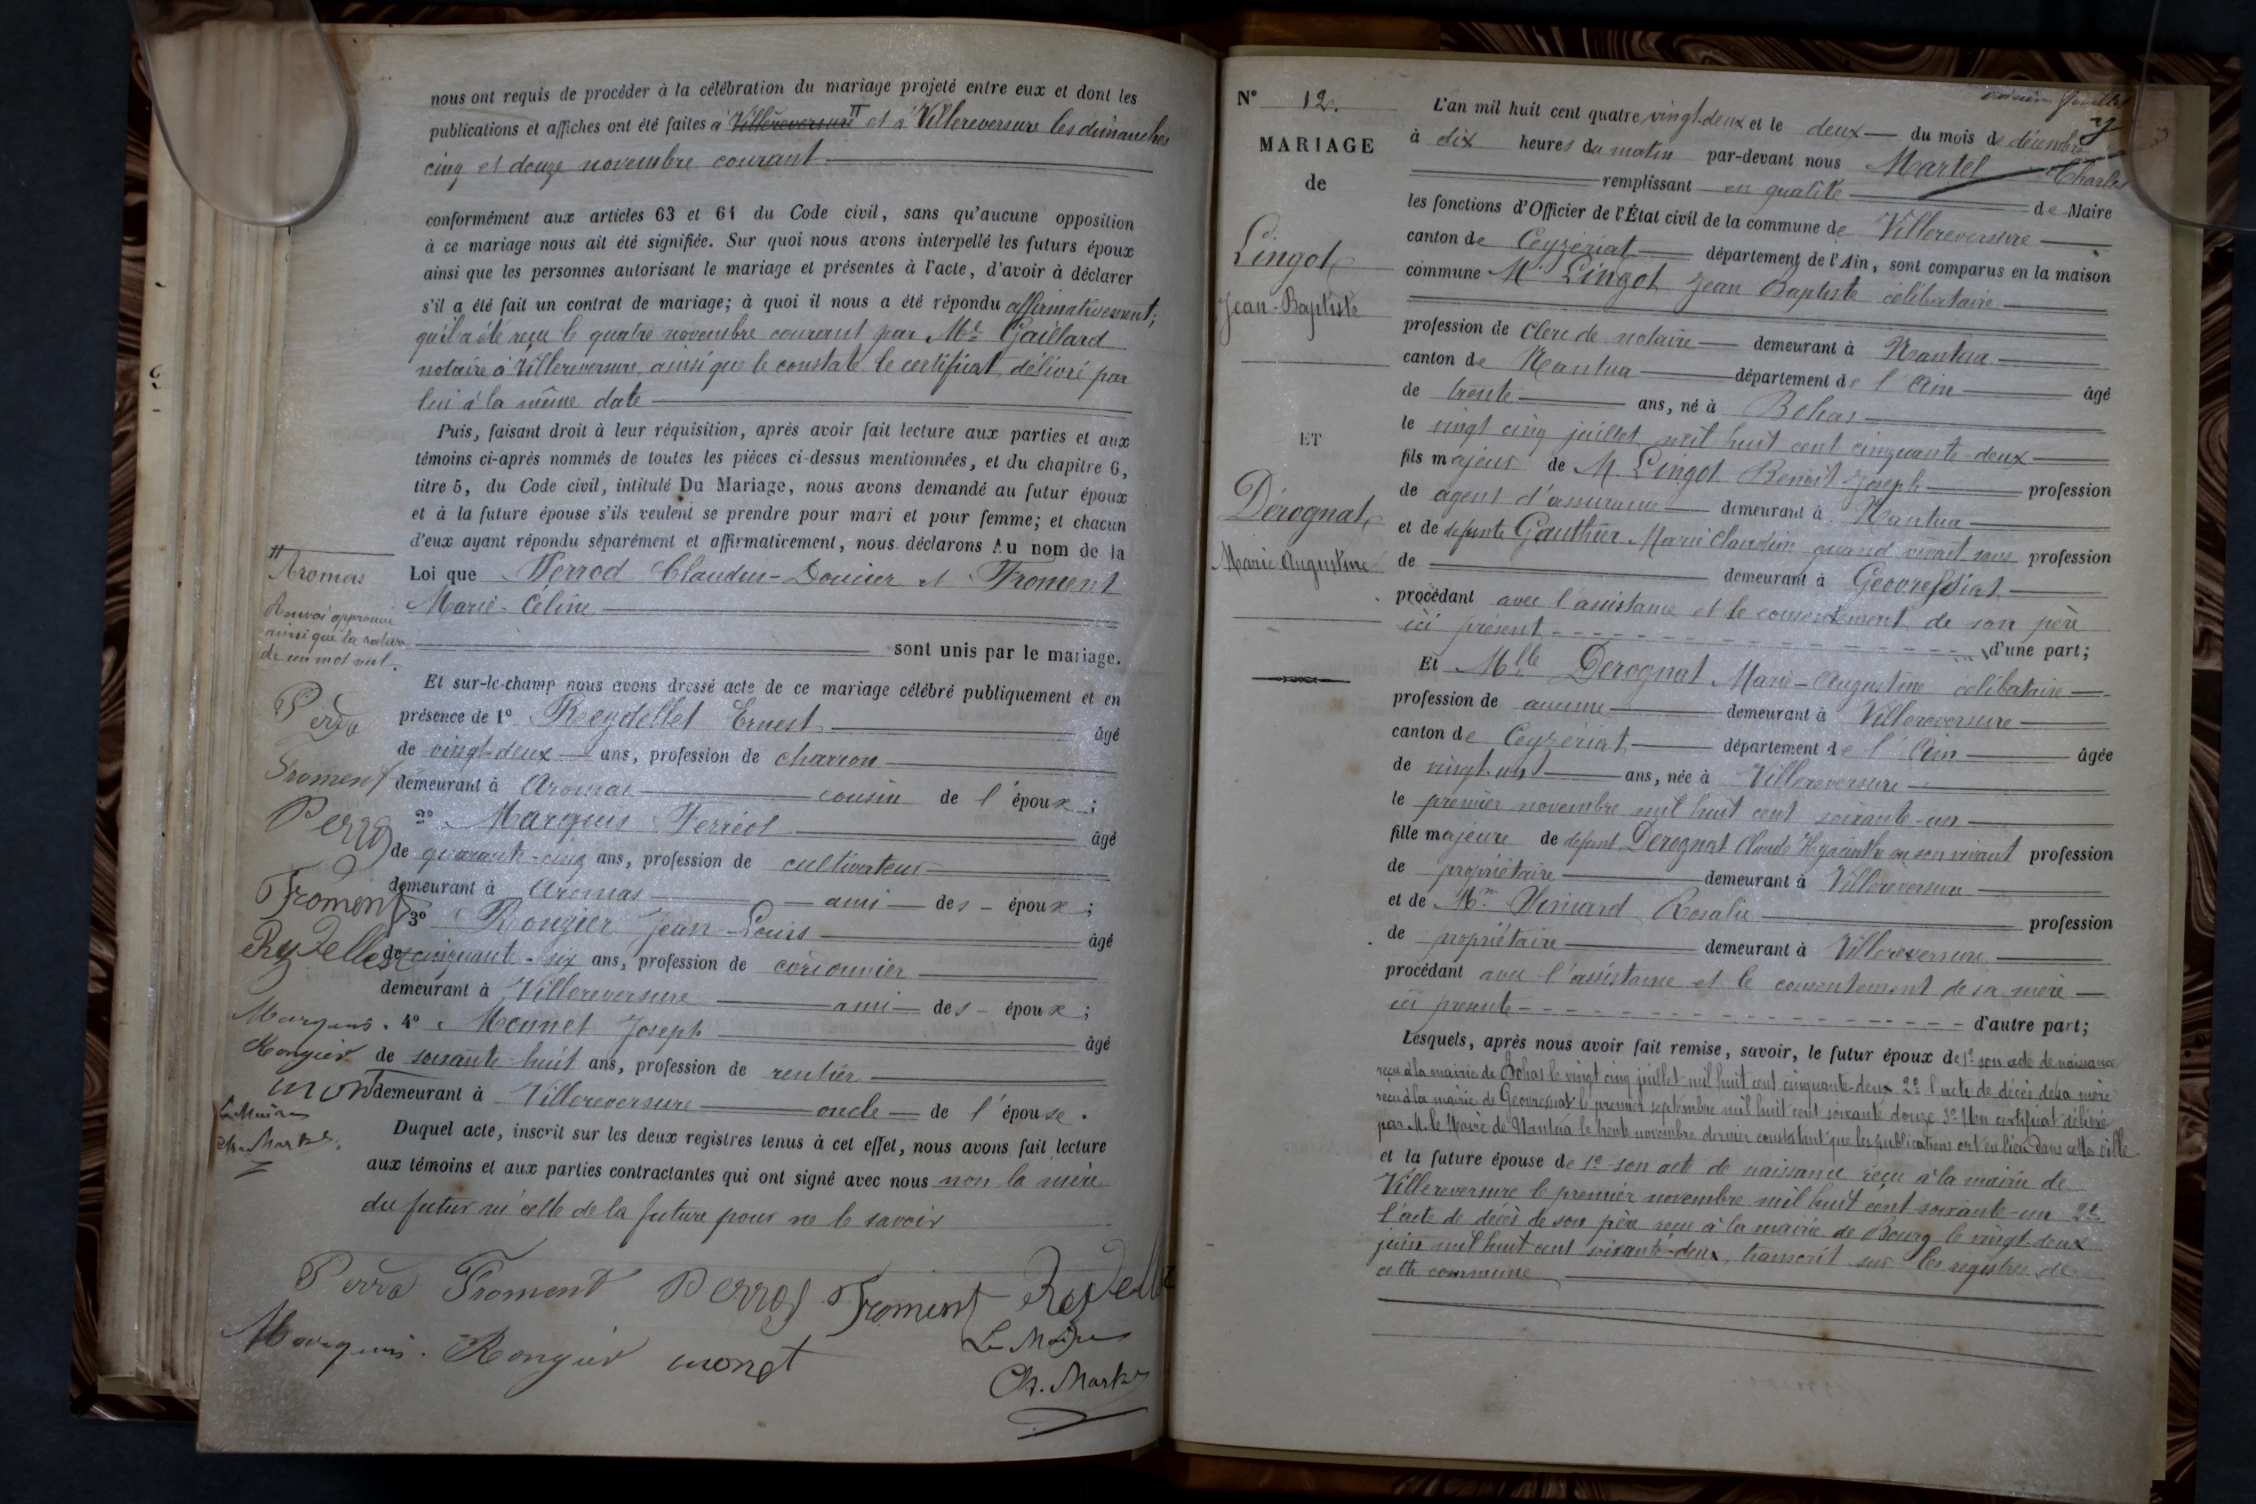 nous ont requis de procéder à la célébration du mariage projeté entre eux et dont les
publications et affiches ont été faites à Villereversure et à Villereversure les dimanches
cinq et douze novembre courant
conformément aux articles 63 et 64 du Code civil, sans qu'aucune opposition
à ce mariage nous ait été signifiée. Sur quoi nous avons interpellé les futurs époux
ainsi que les personnes autorisant le mariage et présentes à l'acte, d'avoir à déclarer
s'il a été fait un contrat de mariage; à quoi il nous a été répondu affirmativement;
qu'il a été reçu le quatre novembre courant par Me Gaillard
notaire à Villereversure, ainsi que le constate le certificat délivré par
lui à la même date
Puis, faisant droit à leur réquisition, après avoir fait lecture aux parties et aux
témoins ci-après nommés de toutes les pièces ci-dessus mentionnées, et du chapitre 6,
titre 5, du Code civil, intitulé Du Mariage, nous avons demandé au futur époux
et à la future épouse s'ils veulent se prendre pour mari et pour femme; et chacun
d'eux ayant répondu séparément et affirmativement, nous déclarons Au nom de la
Loi que Perrod Claudius- et Froment
Marie-Céline
sont unis par le mariage.
Et sur-le-champ nous avons dressé acte de ce mariage célébré publiquement et en
présence de 1° Reydellet Ernest âgé
de vingt-deux ans, profession de charron
demeurant à Aromas cousin de l'époux;
2° Marquis Ferréol âgé
de quarante-cinq ans, profession de cultivateur
demeurant à Aromas ami des époux;
3° Rongier Jean-Louis âgé
de cinquante-six ans, profession de cordonnier
demeurant à Villereversure ami des époux;
4° Monnet Joseph âgé
de soixante-huit ans, profession de rentier
demeurant à Villereversure oncle de l'épouse.
Duquel acte, inscrit sur les deux registres tenus à cet effet, nous avons fait lecture
aux témoins et aux parties contractantes qui ont signé avec nous non la mère
du futur ni celle de la future pour ne le savoir
Perrod Froment Perrod Froment Reydellet
Marquis. Rongier monet
Le Maire
Ch. Martel
Aromas
Renvoi approuvé
ainsi que la rature
de un mot nul.
Perrod
Froment
Perrod
Froment
Reydellet
Marquis.
Rongier
monet
Le Maire
Ch. Martel
N° 12.
MARIAGE
de
Lingot
Jean-Baptiste
ET
Dérognat
Marie Augustine
L'an mil huit cent quatre vingt-deux et le deux du mois de décembre
à dix heures du matin par-devant nous Martel Charles
remplissant en qualité de Maire
les fonctions d'Officier de l'État civil de la commune de Villereversure
canton de Ceyzériat département de l'Ain, sont comparus en la maison
commune Mr Lingot Jean Baptiste célibataire
profession de clerc de notaire demeurant à Nantua
canton de Nantua département de l'Ain âgé
de trente ans, né à Bohas
le vingt cinq juillet mil huit cent cinquante-deux
fils majeur de M. Lingot Benoit Joseph profession
de agent d'assurance demeurant à Nantua
et de defunte Gauthier Marie Claudine quand vivait sans profession
de demeurant à Géovressiat
procédant avec l'assistance et le consentement de son père
ici présent d'une part;
Et Mlle Dérognat Marie-Augustine célibataire
profession de aucune demeurant à Villereversure
canton de Ceyzériat département de l'Ain âgée
de vingt-un ans, née à Villereversure
le premier novembre mil huit cent soixante-un
fille majeure de defunt Dérognat Claude Hyacinthe en son vivant profession
de propriétaire demeurant à Villereversure
et de Rosalie profession
de propriétaire demeurant à Villereversure
procédant avec l'assistance et le consentement de sa mère
ici présente d'autre part;
Lesquels, après nous avoir fait remise, savoir, le futur époux de 1° son acte de naissance
reçu à la mairie de Bohas le vingt cinq juillet mil huit cent cinquante-deux 2° l'acte de décès de sa mère
reçu à la mairie de Géovressiat le premier septembre mil huit cent soixante douze 3° Un certificat délivré
par M. le Maire de Nantua le trente novembre dernier constatant que les publications ont eu lieu dans cette ville
et la future épouse de 1° son acte de naissance reçu à la mairie de
Villereversure le premier novembre mil huit cent soixante-un 2°
l'acte de décès de son père reçu à la mairie de Bourg le vingt-deux
juin mil huit cent soixante-deux, transcrit sur les registres de
cette commune